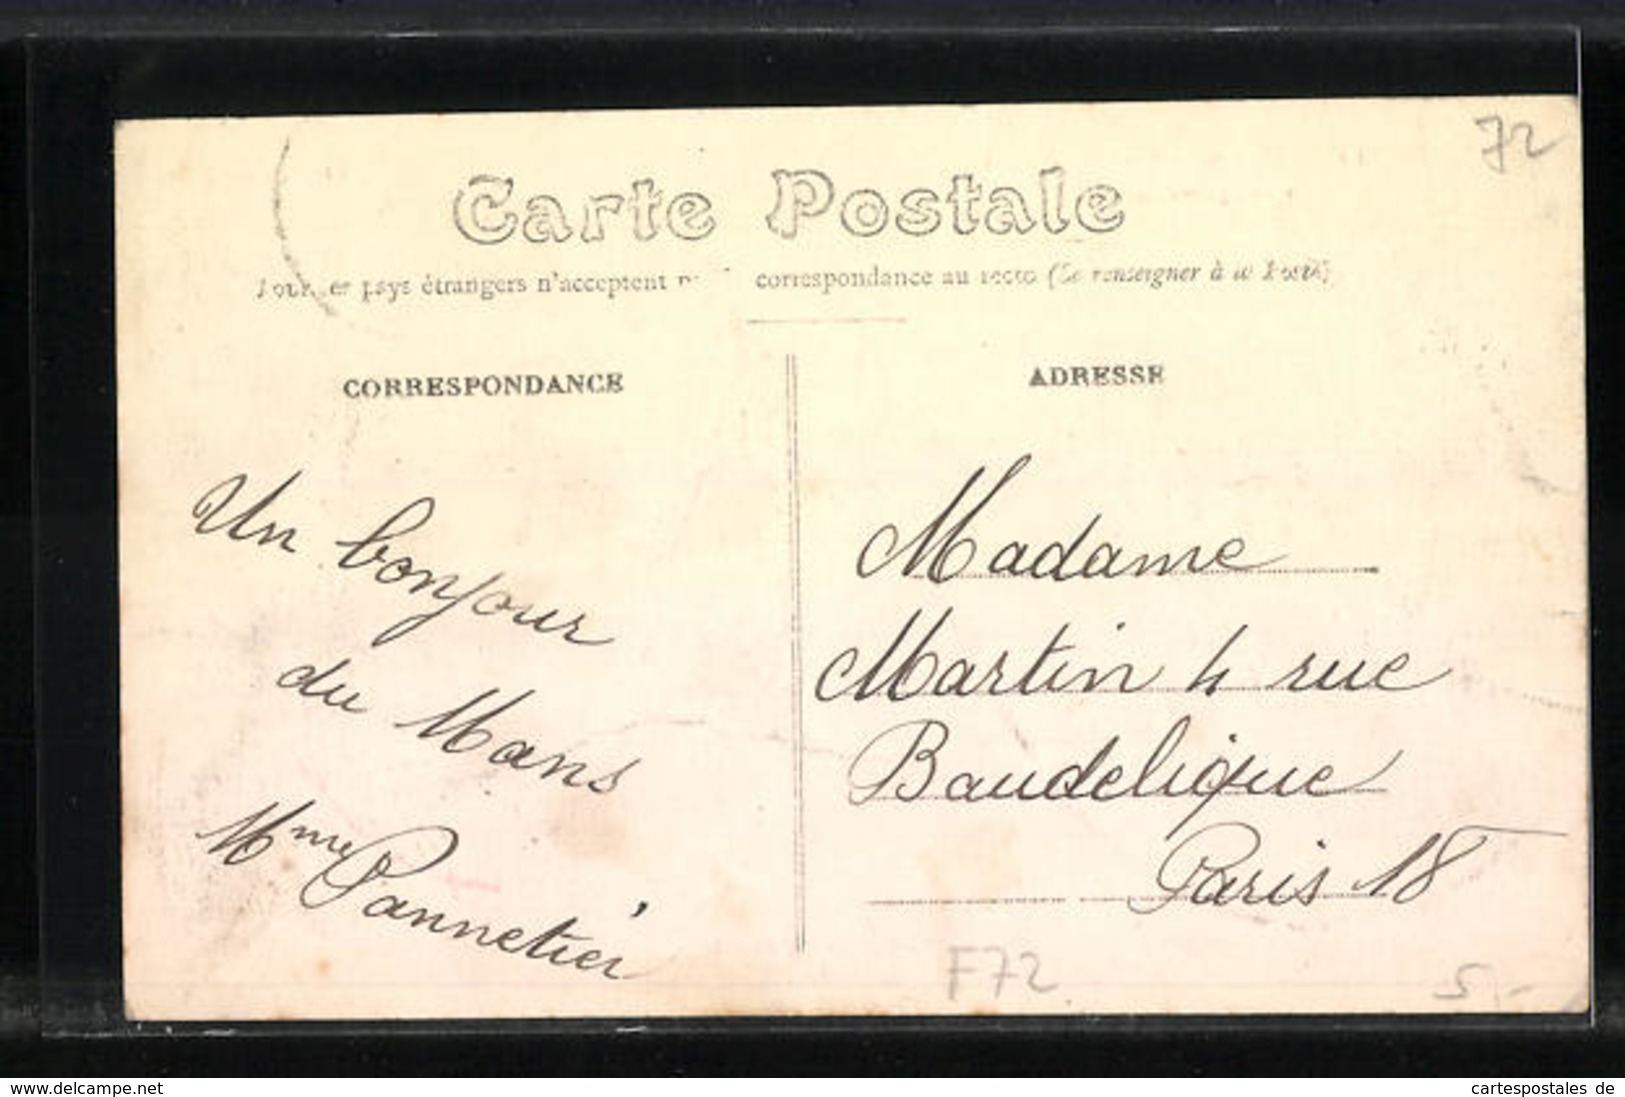 72
Carte Postale
pays étrangers n'acceptent correspondance au recto (Se renseigner à la Poste)
CORRESPONDANCE
Un bonjour
du Mans
Mme Pannetier
ADRESSE
Madame
Martin 4 rue
Baudelique
Paris 18
F72
5,-
www.delcampe.net
cartespostales de